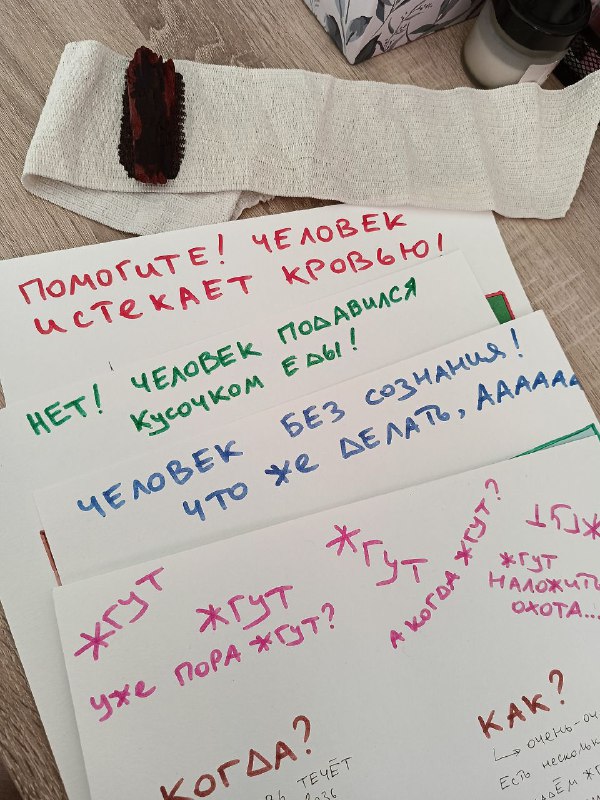 ПОМОГИТЕ! ЧЕЛОВЕК
ИСТЕКАЕТ КРОВЬЮ!
НЕТ! ЧЕЛОВЕК ПОДАВИЛСЯ
КУСОЧКОМ ЕДЫ!
ЧЕЛОВЕК БЕЗ СОЗНАНИЯ!
ЧТО ЖЕ ДЕЛАТЬ, АААААА
ЖГУТ
ЖГУТ
УЖЕ ПОРА ЖГУТ?
ЖГУТ
А КОГДА ЖГУТ?
ЖГУТ
ЖГУТ
НАЛОЖИТЬ
ОХОТА...
КОГДА?
ТЕЧЁТ
КАК?
очень-оч
Есть несколь